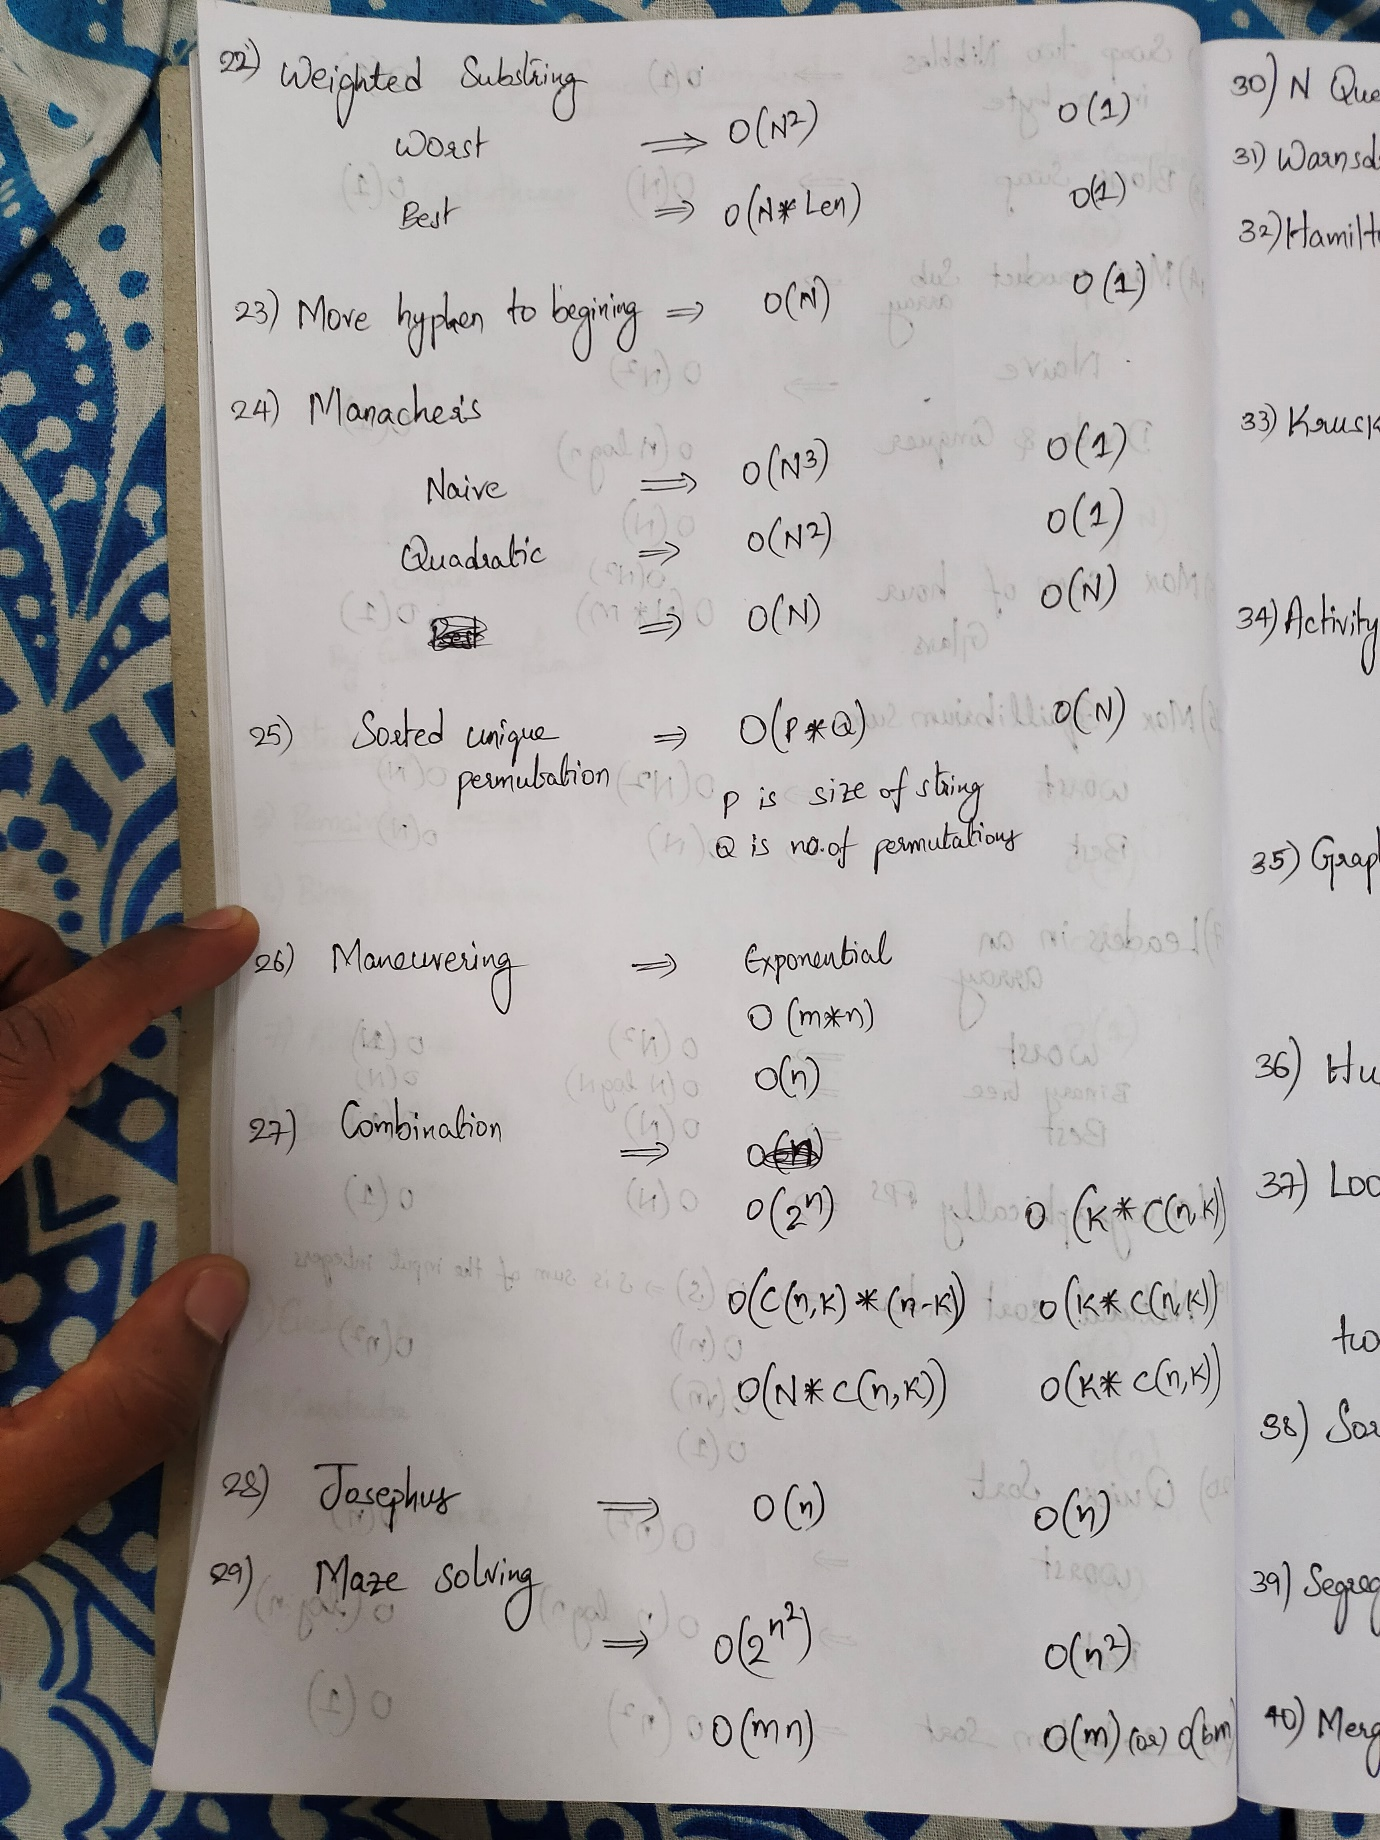 22) Weighted Substring
Worst ⇒ O(N²) O(1)
Best ⇒ O(N*Len) O(1)
23) Move hyphen to begining ⇒ O(N) O(1)
24) Manacher's
Naive ⇒ O(N³) O(1)
Quadratic ⇒ O(N²) O(1)
⇒ O(N) O(N)
25) Sorted unique ⇒ O(P*Q) O(N)
permutation
P is size of string
Q is no.of permutations
26) Maneuvering ⇒ Exponential
O(m*n)
O(n)
27) Combination
⇒
O(2ⁿ) O(K*C(n,K))
O(C(n,K)*(n-K)) O(K*C(n,K))
O(N*C(n,K)) O(K*C(n,K))
28) Josephus ⇒ O(n) O(n)
29) Maze solving
⇒ O(2^n²) O(n²)
O(mn) O(m) (or) O(bm)
30) N Que
31) Warnsd
32) Hamilt
33) Krusk
34) Activity
35) Grap
36) Hu
37) Loo
two
38) Sor
39) Segreg
40) Merg